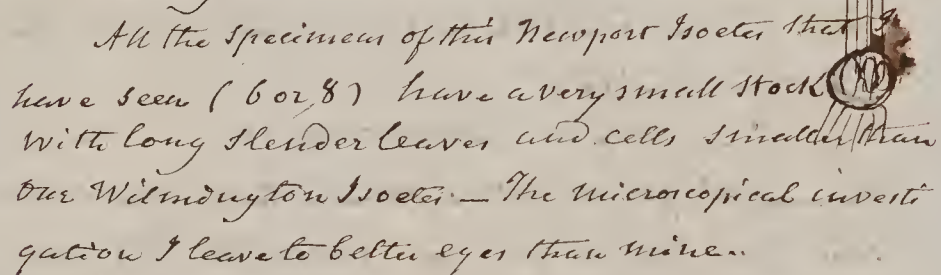 All the specimens of this Newport Isoetes that I
have seen (6 or 8) have a very small stock
with long slender leaves and cells smaller than
our Wilmington Isoetes — The microscopical investi
gation I leave to better eyes than mine..